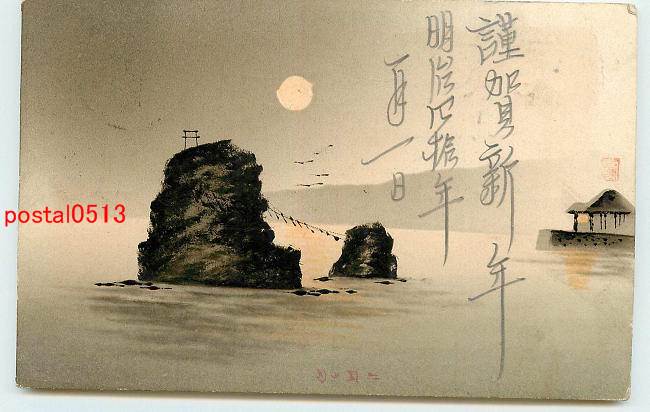 謹賀新年
明治四拾年
一月一日
postal0513